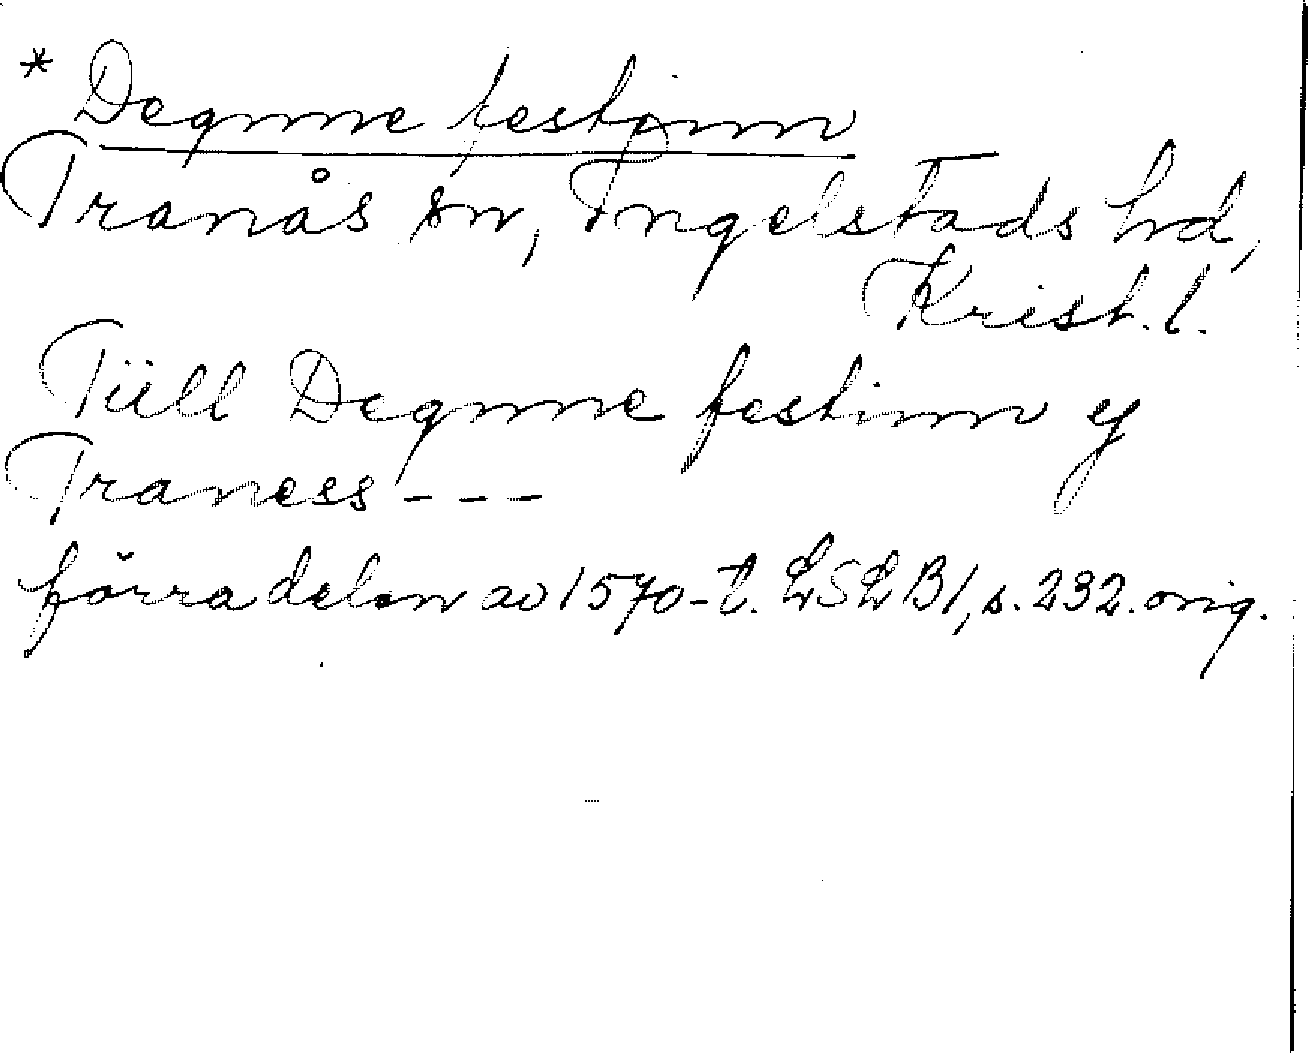 * Degnne festinn
Tranås sn, Ingelstads hd,
Krist. l.
Tiill Degnne festinn y
Traness - - -
förra delen av 1570-t. LSLB1, s. 232. orig.